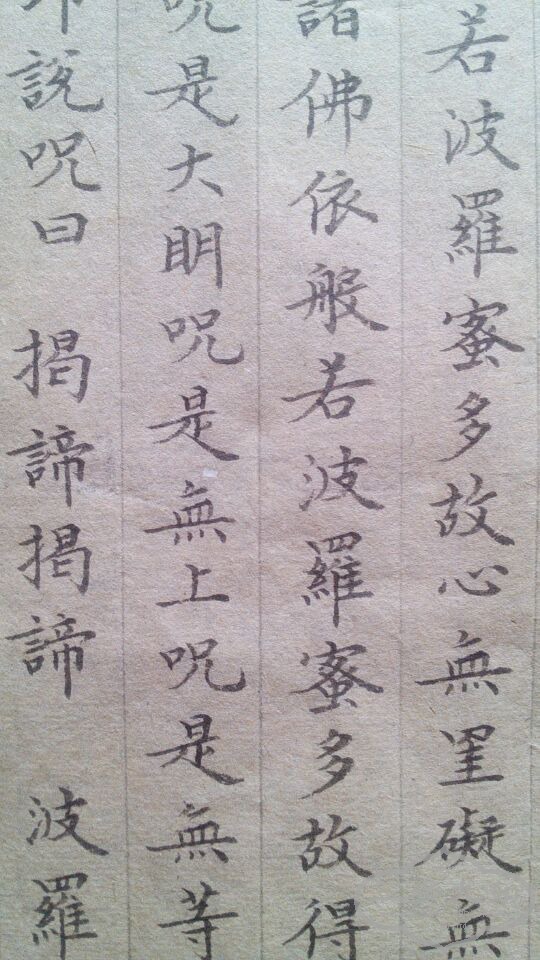 若波羅蜜多故心無罣礙無
諸佛依般若波羅蜜多故得
呪是大明呪是無上呪是無等
即說呪曰 揭諦揭諦 波羅